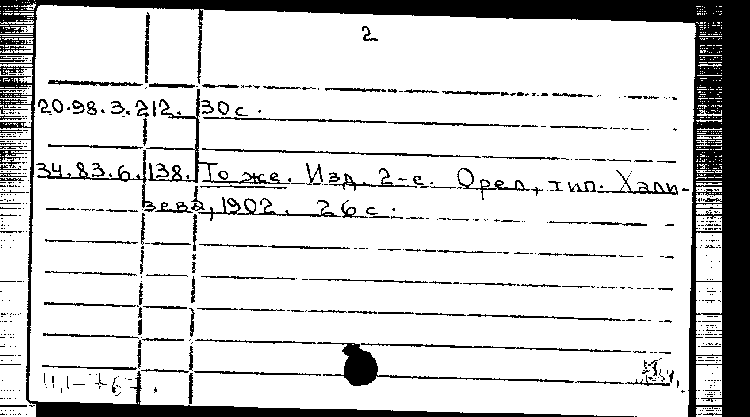 2
20.98.3.212. 30 с.
34.83.6.138. То же. Изд. 2-е. Орел, тип. Хали-
зева, 1902. 26 с.